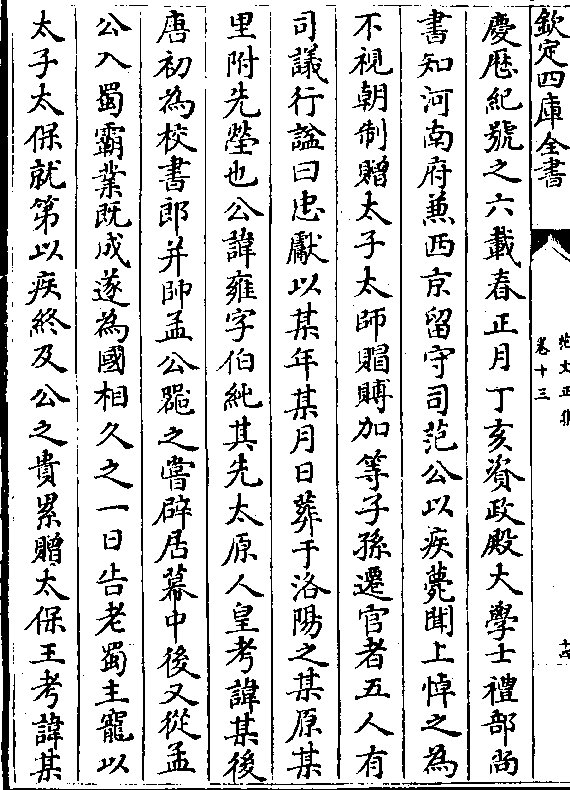 欽定四庫全書
卷十三
慶歴紀號之六載春正月丁亥資政殿大學士禮部尚
書知河南府兼西京留守司范公以疾薨聞上悼之為
不視朝制贈太子太師賵賻加等子孫遷官者五人有
司議行諡曰忠獻以某年某月日葬于洛陽之某原某
里附先塋也公諱雍字伯純其先太原人皇考諱某後
唐初為校書郎并帥孟公器之嘗辟居幕中後又從孟
公入蜀霸業既成遂為國相久之一日告老蜀主寵以
太子太保就第以疾終及公之貴累贈太保王考諱某